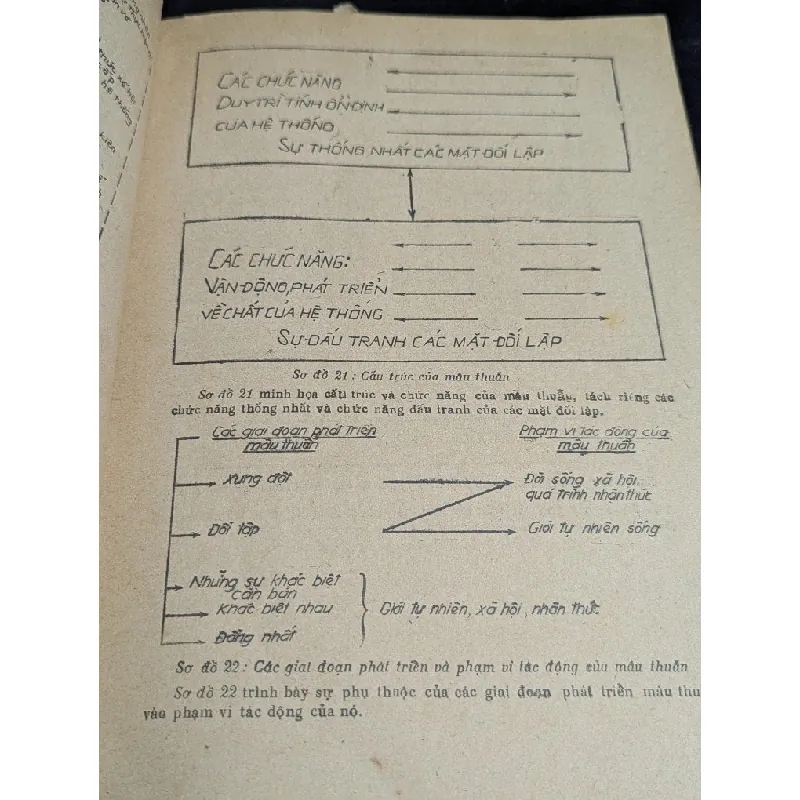 CÁC CHỨC NĂNG
DUY TRÌ TÍNH ỔN ĐỊNH
CỦA HỆ THỐNG
SỰ THỐNG NHẤT CÁC MẶT ĐỐI LẬP
CÁC CHỨC NĂNG:
VẬN ĐỘNG, PHÁT TRIỂN
VỀ CHẤT CỦA HỆ THỐNG
SỰ ĐẤU TRANH CÁC MẶT ĐỐI LẬP
Sơ đồ 21: Cấu trúc của mâu thuẫn
Sơ đồ 21 minh họa cấu trúc và chức năng của mâu thuẫn, tách riêng các
chức năng thống nhất và chức năng đấu tranh của các mặt đối lập.
Các giai đoạn phát triển
mâu thuẫn
Phạm vi tác động của
mâu thuẫn
Xung đột
Đời sống xã hội
quá trình nhận thức
Đối lập
Giới tự nhiên sống
Những sự khác biệt
căn bản
Khác biệt nhau
Giới tự nhiên, xã hội, nhận thức
Đồng nhất
Sơ đồ 22: Các giai đoạn phát triển và phạm vi tác động của mâu thuẫn
Sơ đồ 22 trình bày sự phụ thuộc của các giai đoạn phát triển mâu thu
vào phạm vi tác động của nó.